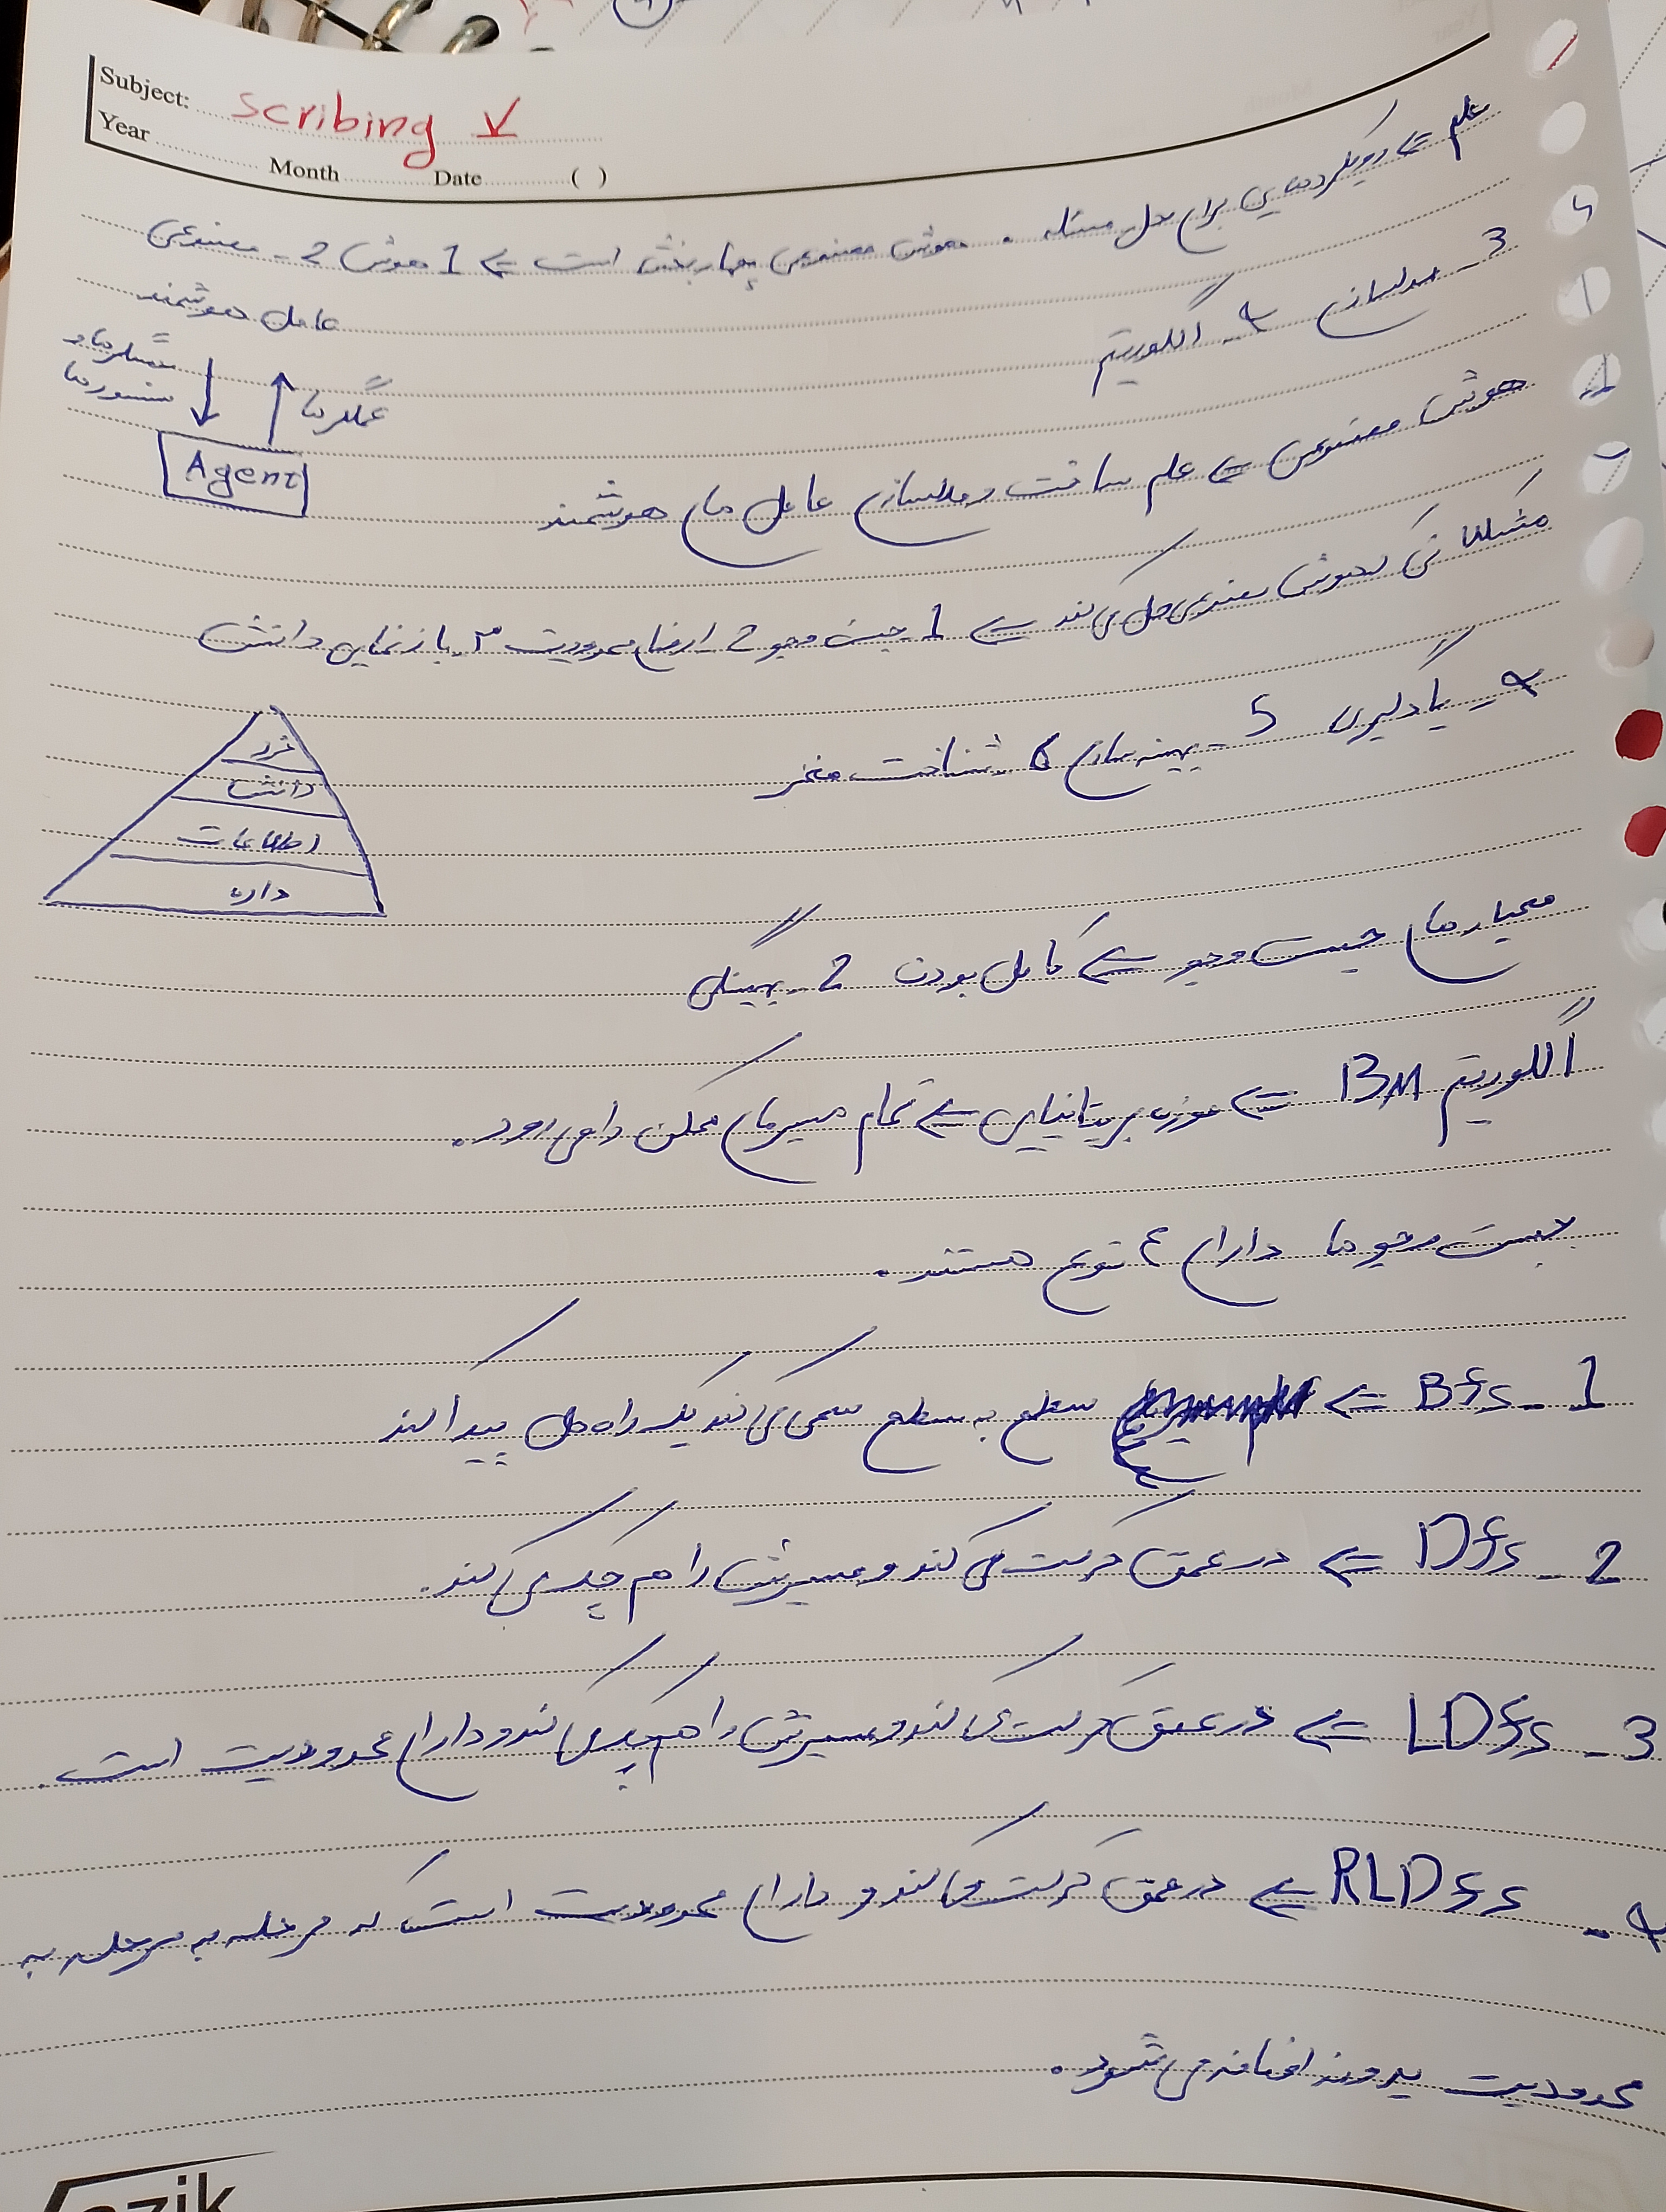 Subject: scribing ✓
Year Month Date ( )
علم ⇐ رویکردهایی برای حل مسئله . هوش مصنوعی چهار بخش است ⇐ 1 هوش 2- مصنوعی
3- مدلسازی ۴- الگوریتم
عامل هوشمند
حسگرها و
سنسورها
عملگرها
Agent
هوش مصنوعی ⇐ علم ساخت و مدلسازی عامل های هوشمند
مشکلاتی که هوش مصنوعی حل می کند ⇐ 1- جست و جو 2- ارضای محدودیت ۳- بازنمایی دانش
۴- یادگیری 5- بهینه سازی 6- شناخت مغز
خرد
دانش
اطلاعات
داده
معیارهای جست و جو ⇐ کامل بودن 2- بهینگی
الگوریتم BM ⇐ موزه بریتانیایی ⇐ تمام مسیرهای ممکن را می رود.
جست و جو ها دارای ۴ نوع هستند.
1- Bfs ⇐ سطح به سطح سعی می کند یک راه حل پیدا کند
2- Dfs ⇐ در عمق حرکت می کند و مسیرش را هم چک می کند.
3- LDfs ⇐ در عمق حرکت می کند و مسیرش را هم چک می کند و دارای محدودیت است.
۴- RLDfs ⇐ در عمق حرکت می کند و دارای محدودیت است که مرحله به مرحله به
محدودیت پرونده اضافه می شود.